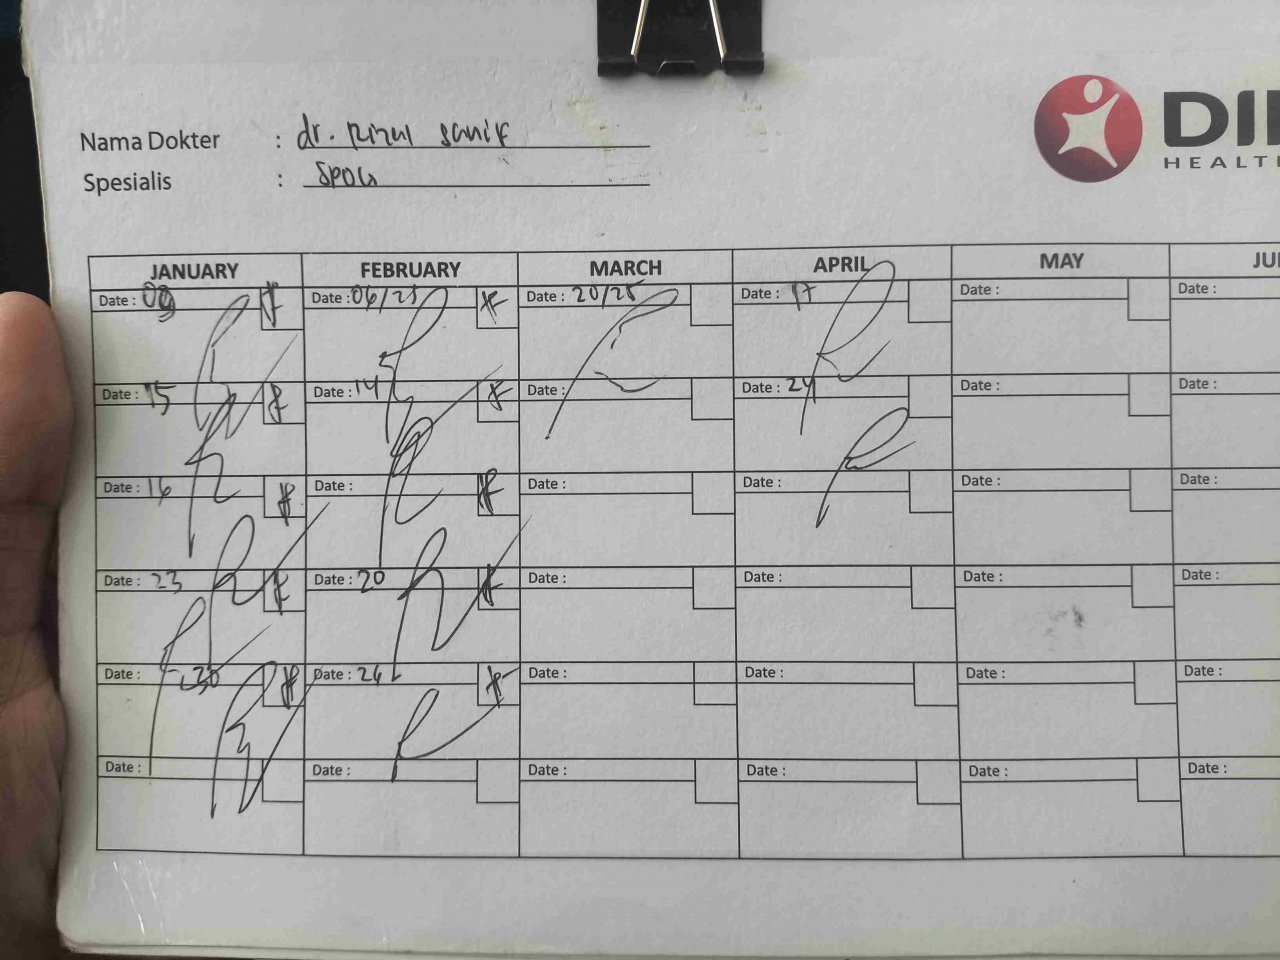 Nama Dokter : dr. Rizal Sanif
Spesialis : SPOG
DI
HEALT
JANUARY FEBRUARY MARCH APRIL MAY JU
Date : 09 Date : 06/25 Date : 20/25 Date : 17 Date : Date :
Date : 15 Date : 14 Date : Date : 24 Date : Date :
Date : 16 Date : Date : Date : Date : Date :
Date : 23 Date : 20 Date : Date : Date : Date :
Date : 30 Date : 24 Date : Date : Date : Date :
Date : Date : Date : Date : Date : Date :